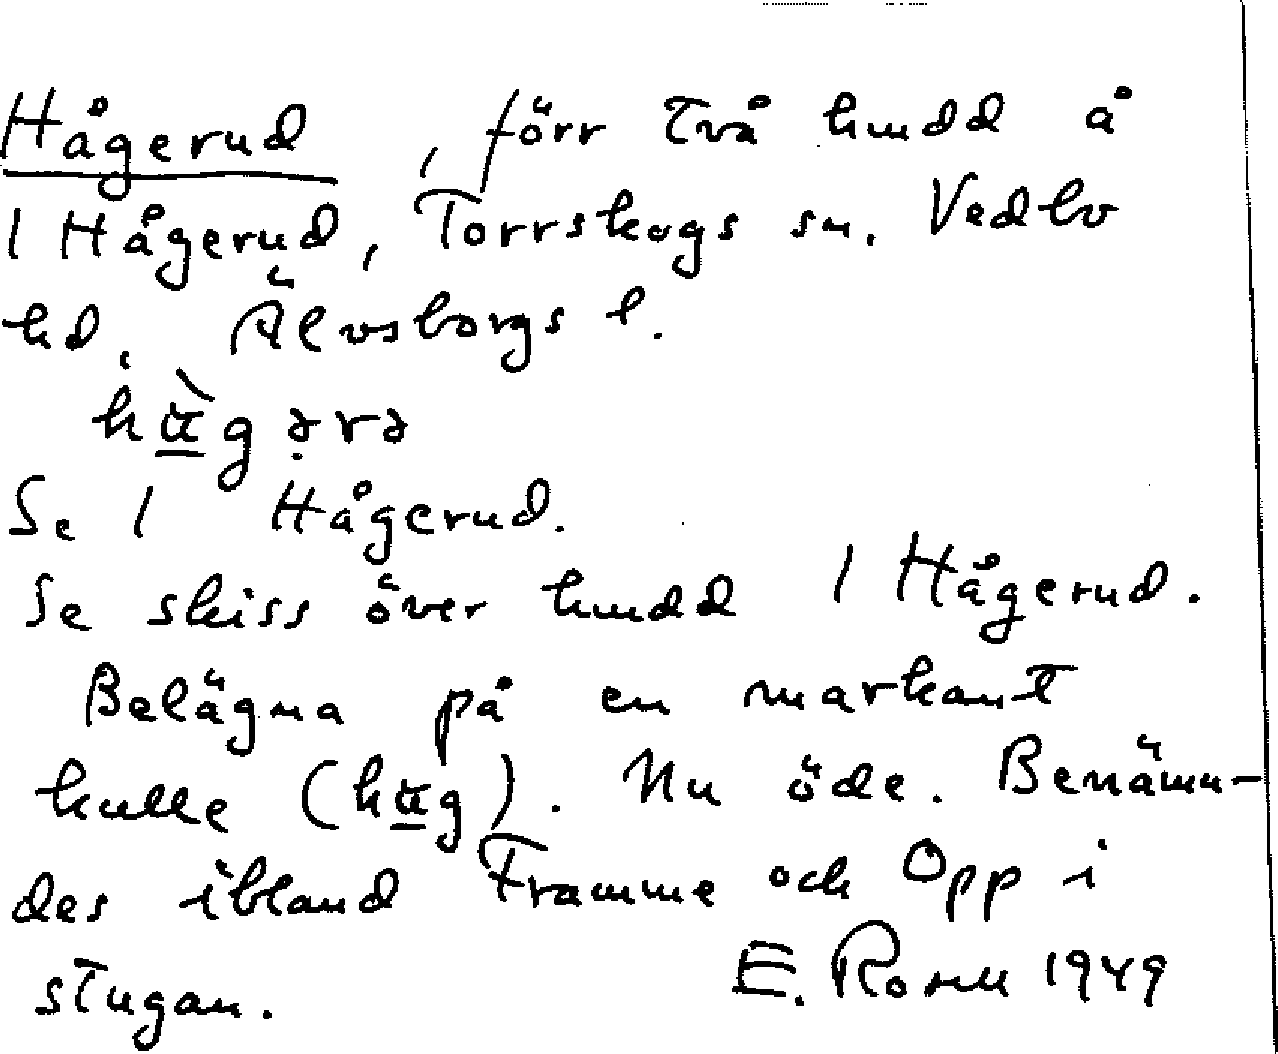 Hågerud, förr två hmdd å
1 Hågerud, Torrskogs sn. Vedbo
hd. Älvsborgs l.
Se 1 Hågerud.
Se skiss över hmdd 1 Hågerud.
Belägna på en markant
kulle (). Nu öde. Benämn-
des ibland Framme och Opp i
stugan. E. Rosell 1949